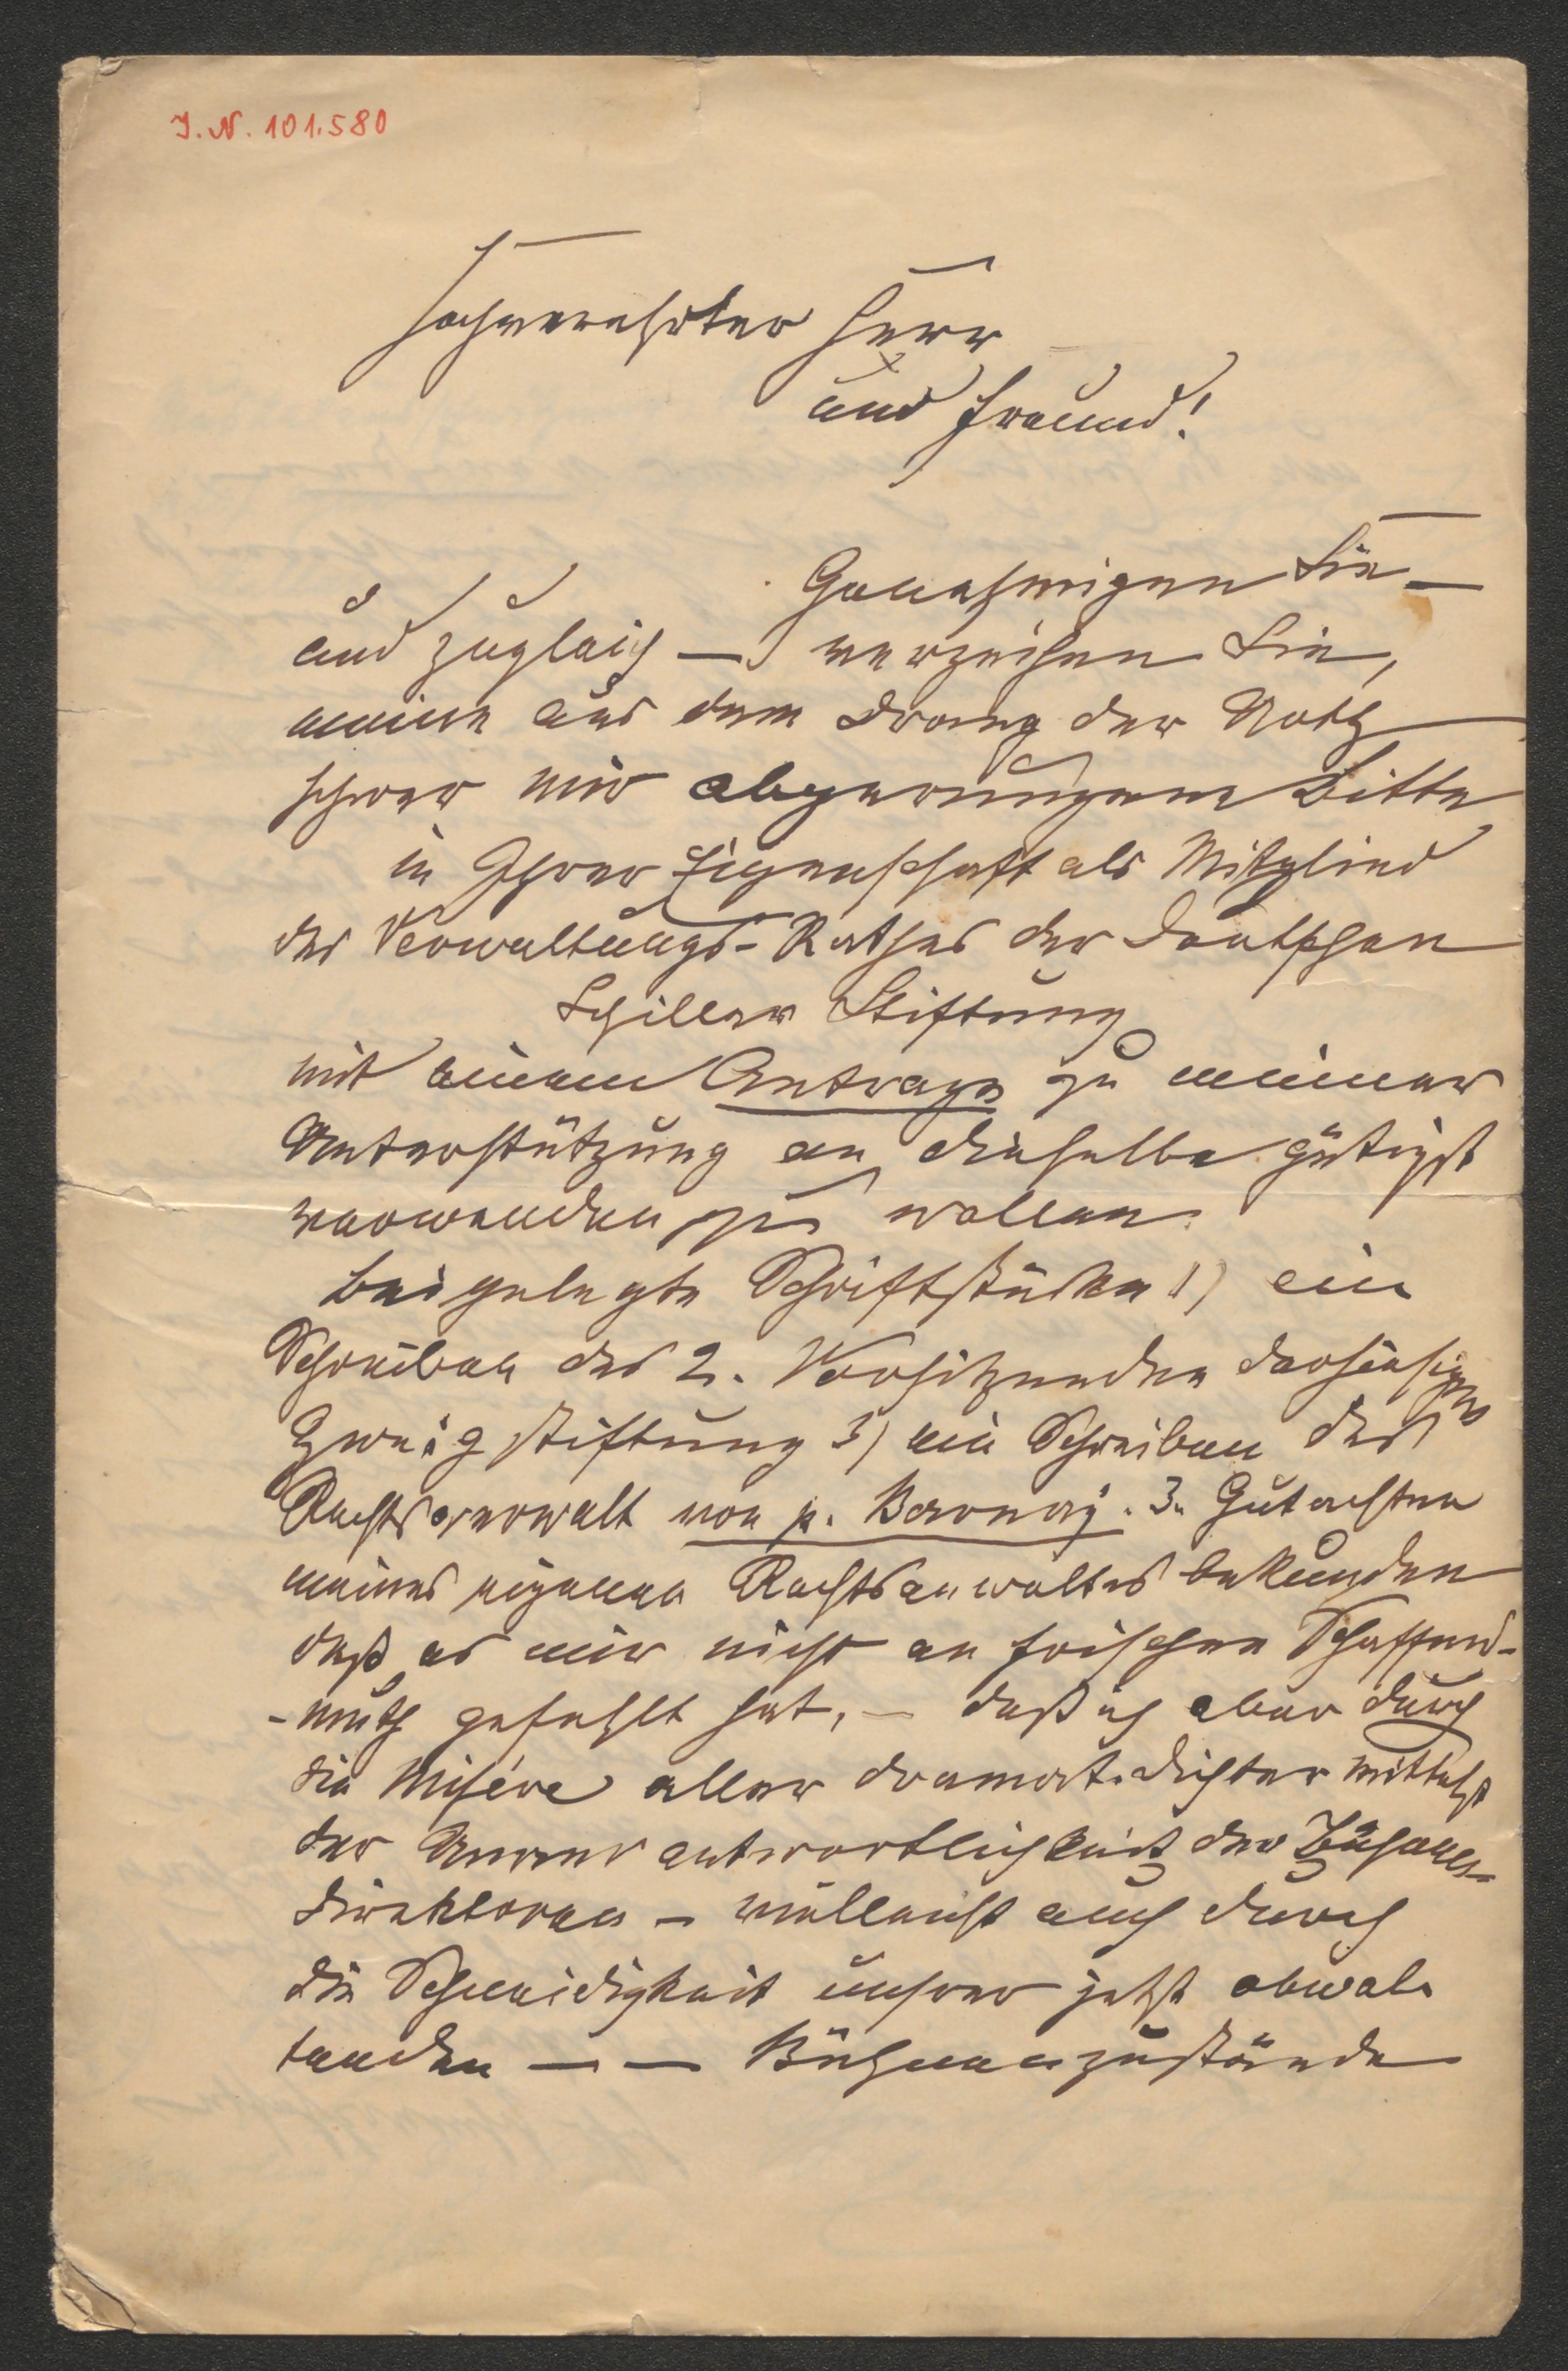 J. N. 101.580
Hochverehrter Herr
und Freund!
Genehmigen Sie —
und zugleich — verzeihen Sie,
meine aus dem Drang der Noth
schwer mir abgerungene Bitte
in Ihrer Eigenschaft als Mitglied
des Verwaltungs-Rathes der Deutschen
Schiller Stiftung
mit einem Antrage zu meiner
Unterstützung an dieselbe gütigst
verwenden zu wollen.
Beigelegte Schriftstücke 1) ein
Schreiben des 2. Vorsitzenden der hiesigen
Zweigstiftung ein Schreiben des
Rechtsanwalt von p. Baronay. 3. Gutachten
meines eigenen Rechtsanwaltes bekunden
daß es mir nicht an frischen Schaffens-
-muth gefehlt hat, — daß ich aber durch
die Misére aller dramat. Dichter mittelst
der Unverantwortlichkeit der Bühnen-
direktoren — vielleicht auch durch
die Schneidigkeit unsrer jetzt obwal-
tenden — — Bühnenzustände